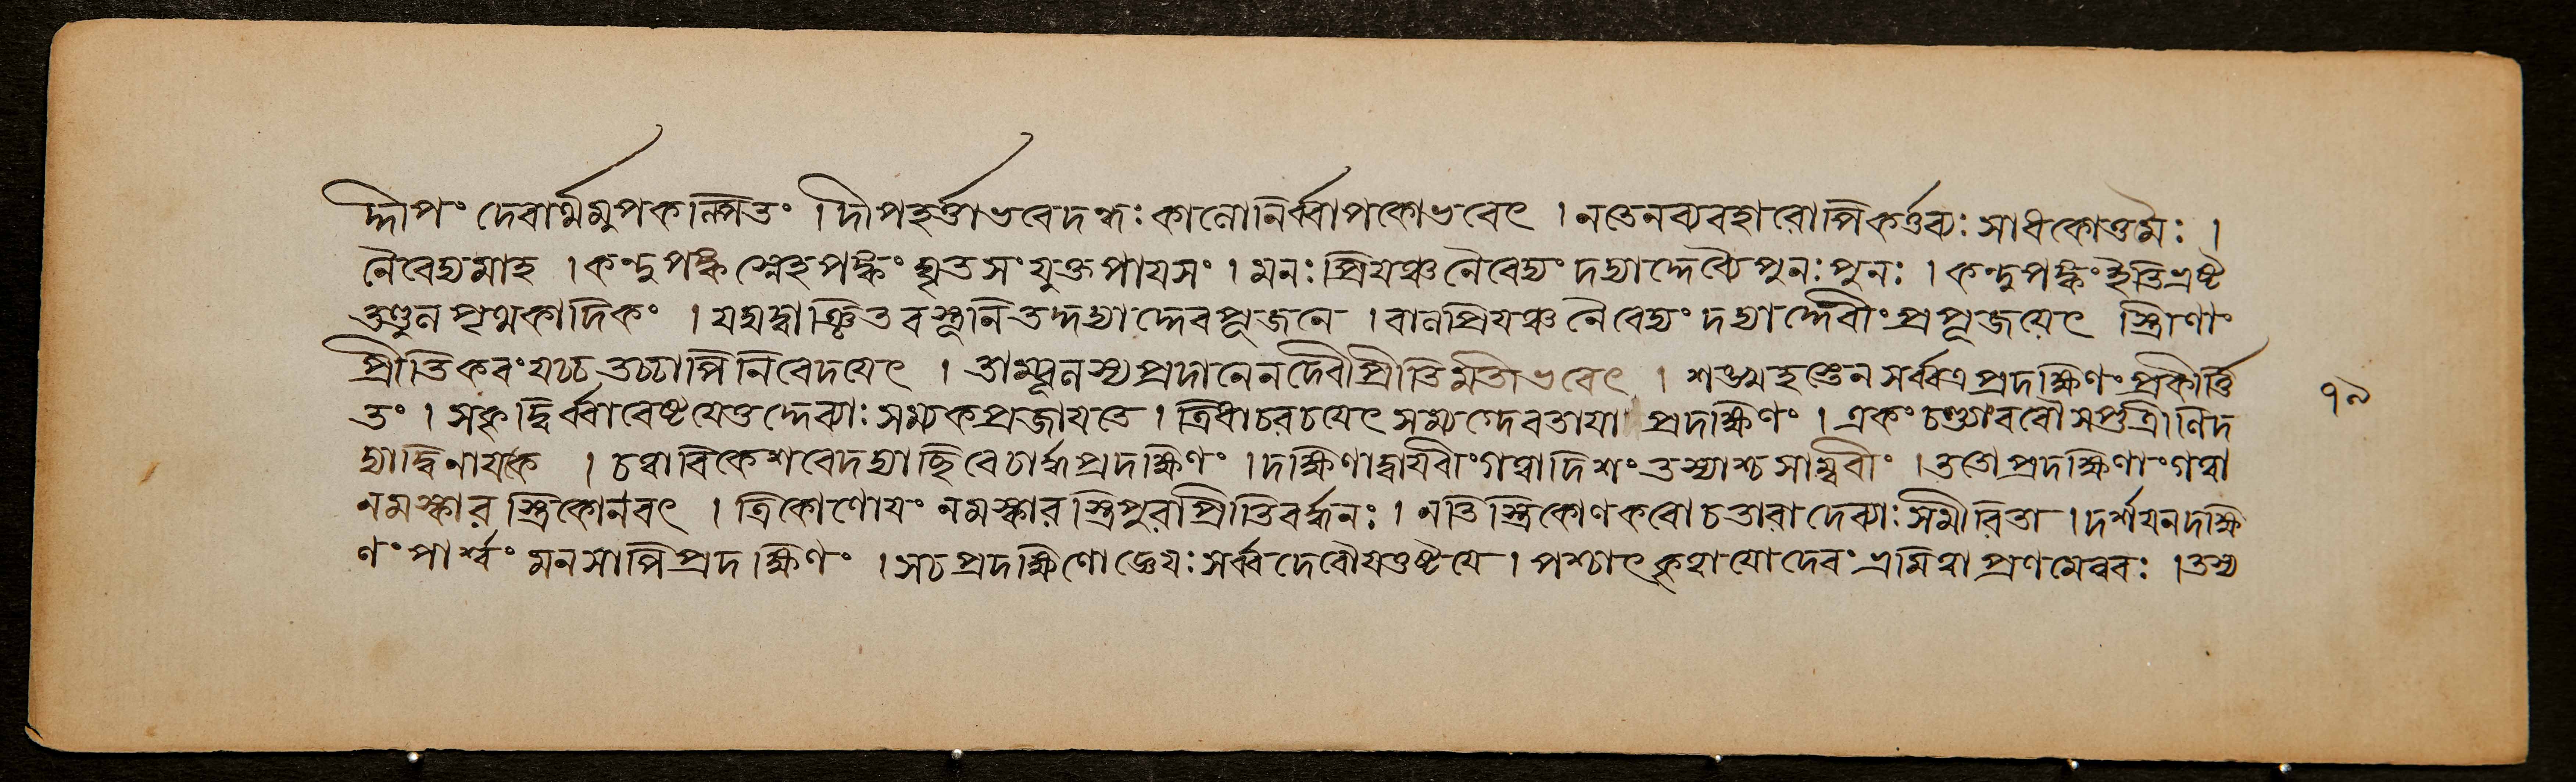 দ্দীপং দেবার্থমুপকল্পিতং । দীপহর্ত্তাভবেদন্ধঃ কাণোনির্ব্বাপকোভবেৎ । নতেনব্যবহারোপিকর্ত্তব্যঃ সাধকোত্তমৈঃ ।
নৈবেদ্যমাহ । কন্দুপক্বং স্নেহপক্বং ঘৃতসংযুক্তপায়সং । মনঃপ্রিয়ঞ্চনৈবেদ্যং দদ্যাদ্দেব্যৈপুনঃপুনঃ । কন্দুপক্বং ইতিভ্রষ্ট
তণ্ডুলপৃথকাদিকং । যদ্যদ্বাঞ্ছিতবস্তূনিতদ্দদ্যাদ্দেবপূজনে । বালপ্রিয়ঞ্চনৈবেদ্যং দদ্যাদ্দেবীংপ্রপূজয়েৎ স্ত্রীণাং
প্রীতিকরংযচ্চতচ্চাপিনিবেদয়েৎ । তাম্বূলস্যপ্রদানেনদেবীপ্রীতিমতীভবেৎ । শঙ্খহস্তেনসর্ব্বত্রপ্রদক্ষিণংপ্রকীর্ত্তি
তং । সকৃদ্বির্ব্বাবেষ্টয়েত্তদ্দেব্যাঃ সম্যকপ্রজায়তে । ত্রিধাচরচয়েৎ সম্যগ্দেবতায়া প্রদক্ষিণং । একংচণ্ড্যাংরবৌসপ্তত্রীণিদ ৭৯
দ্যাদ্বিনায়কে । চত্বারিকেশবেদদ্যাচ্ছিবেচার্দ্ধপ্রদক্ষিণং । দক্ষিণাদ্বায়বীংগত্বাদিশংতস্যাশ্চসাম্ভবীং । ততোপ্রদক্ষিণাংগত্বা
নমস্কারস্ত্রিকোনবৎ । ত্রিকোণোয়ং নমস্কারস্ত্রিপুরাপ্রীতিবর্দ্ধনঃ । নতিস্ত্রিকোণকরোচতারাদেব্যাঃসমীরিতা । দর্শয়নদক্ষি
ণংপার্শ্বং মনসাপিপ্রদক্ষিণং । সচপ্রদক্ষিণোজ্ঞেয়ঃ সর্ব্বদেবৌঘতুষ্টয়ে । পশ্চাৎকৃত্বাযোদেবংভ্রমিত্বাপ্রণমেন্নরঃ । তস্য